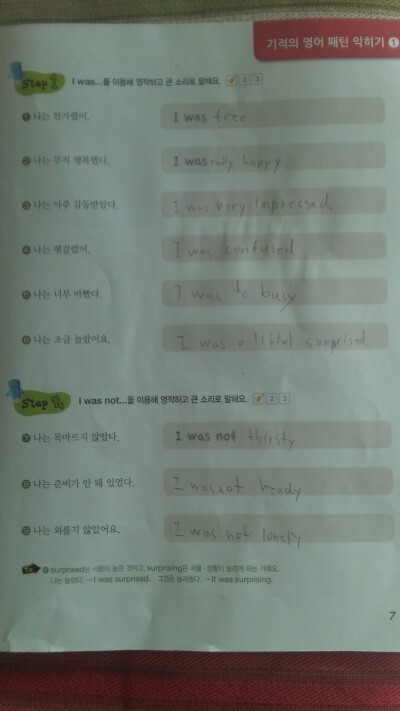 기적의 영어 패턴 익히기 1
Step 1 I was...를 이용해 영작하고 큰 소리로 말해요. 1 2 3
1 나는 한가했어. I was free
2 나는 무척 행복했다. I was really happy
3 나는 아주 감동받았다. I was very Impressed
4 나는 헷갈렸어. I was confused
5 나는 너무 바빴다. I was to busy
6 나는 조금 놀랐어요. I was a littel surprised
Step 2 I was not...을 이용해 영작하고 큰 소리로 말해요. 1 2 3
7 나는 목마르지 않았다. I was not thirsty
8 나는 준비가 안 돼 있었다. I was not ready
9 나는 외롭지 않았어요. I was not lonely
6 surprised는 사람이 놀란 것이고, surprising은 사물·상황이 놀라게 하는 거예요.
나는 놀랐다. → I was surprised. 그것은 놀라웠다. → It was surprising.
7